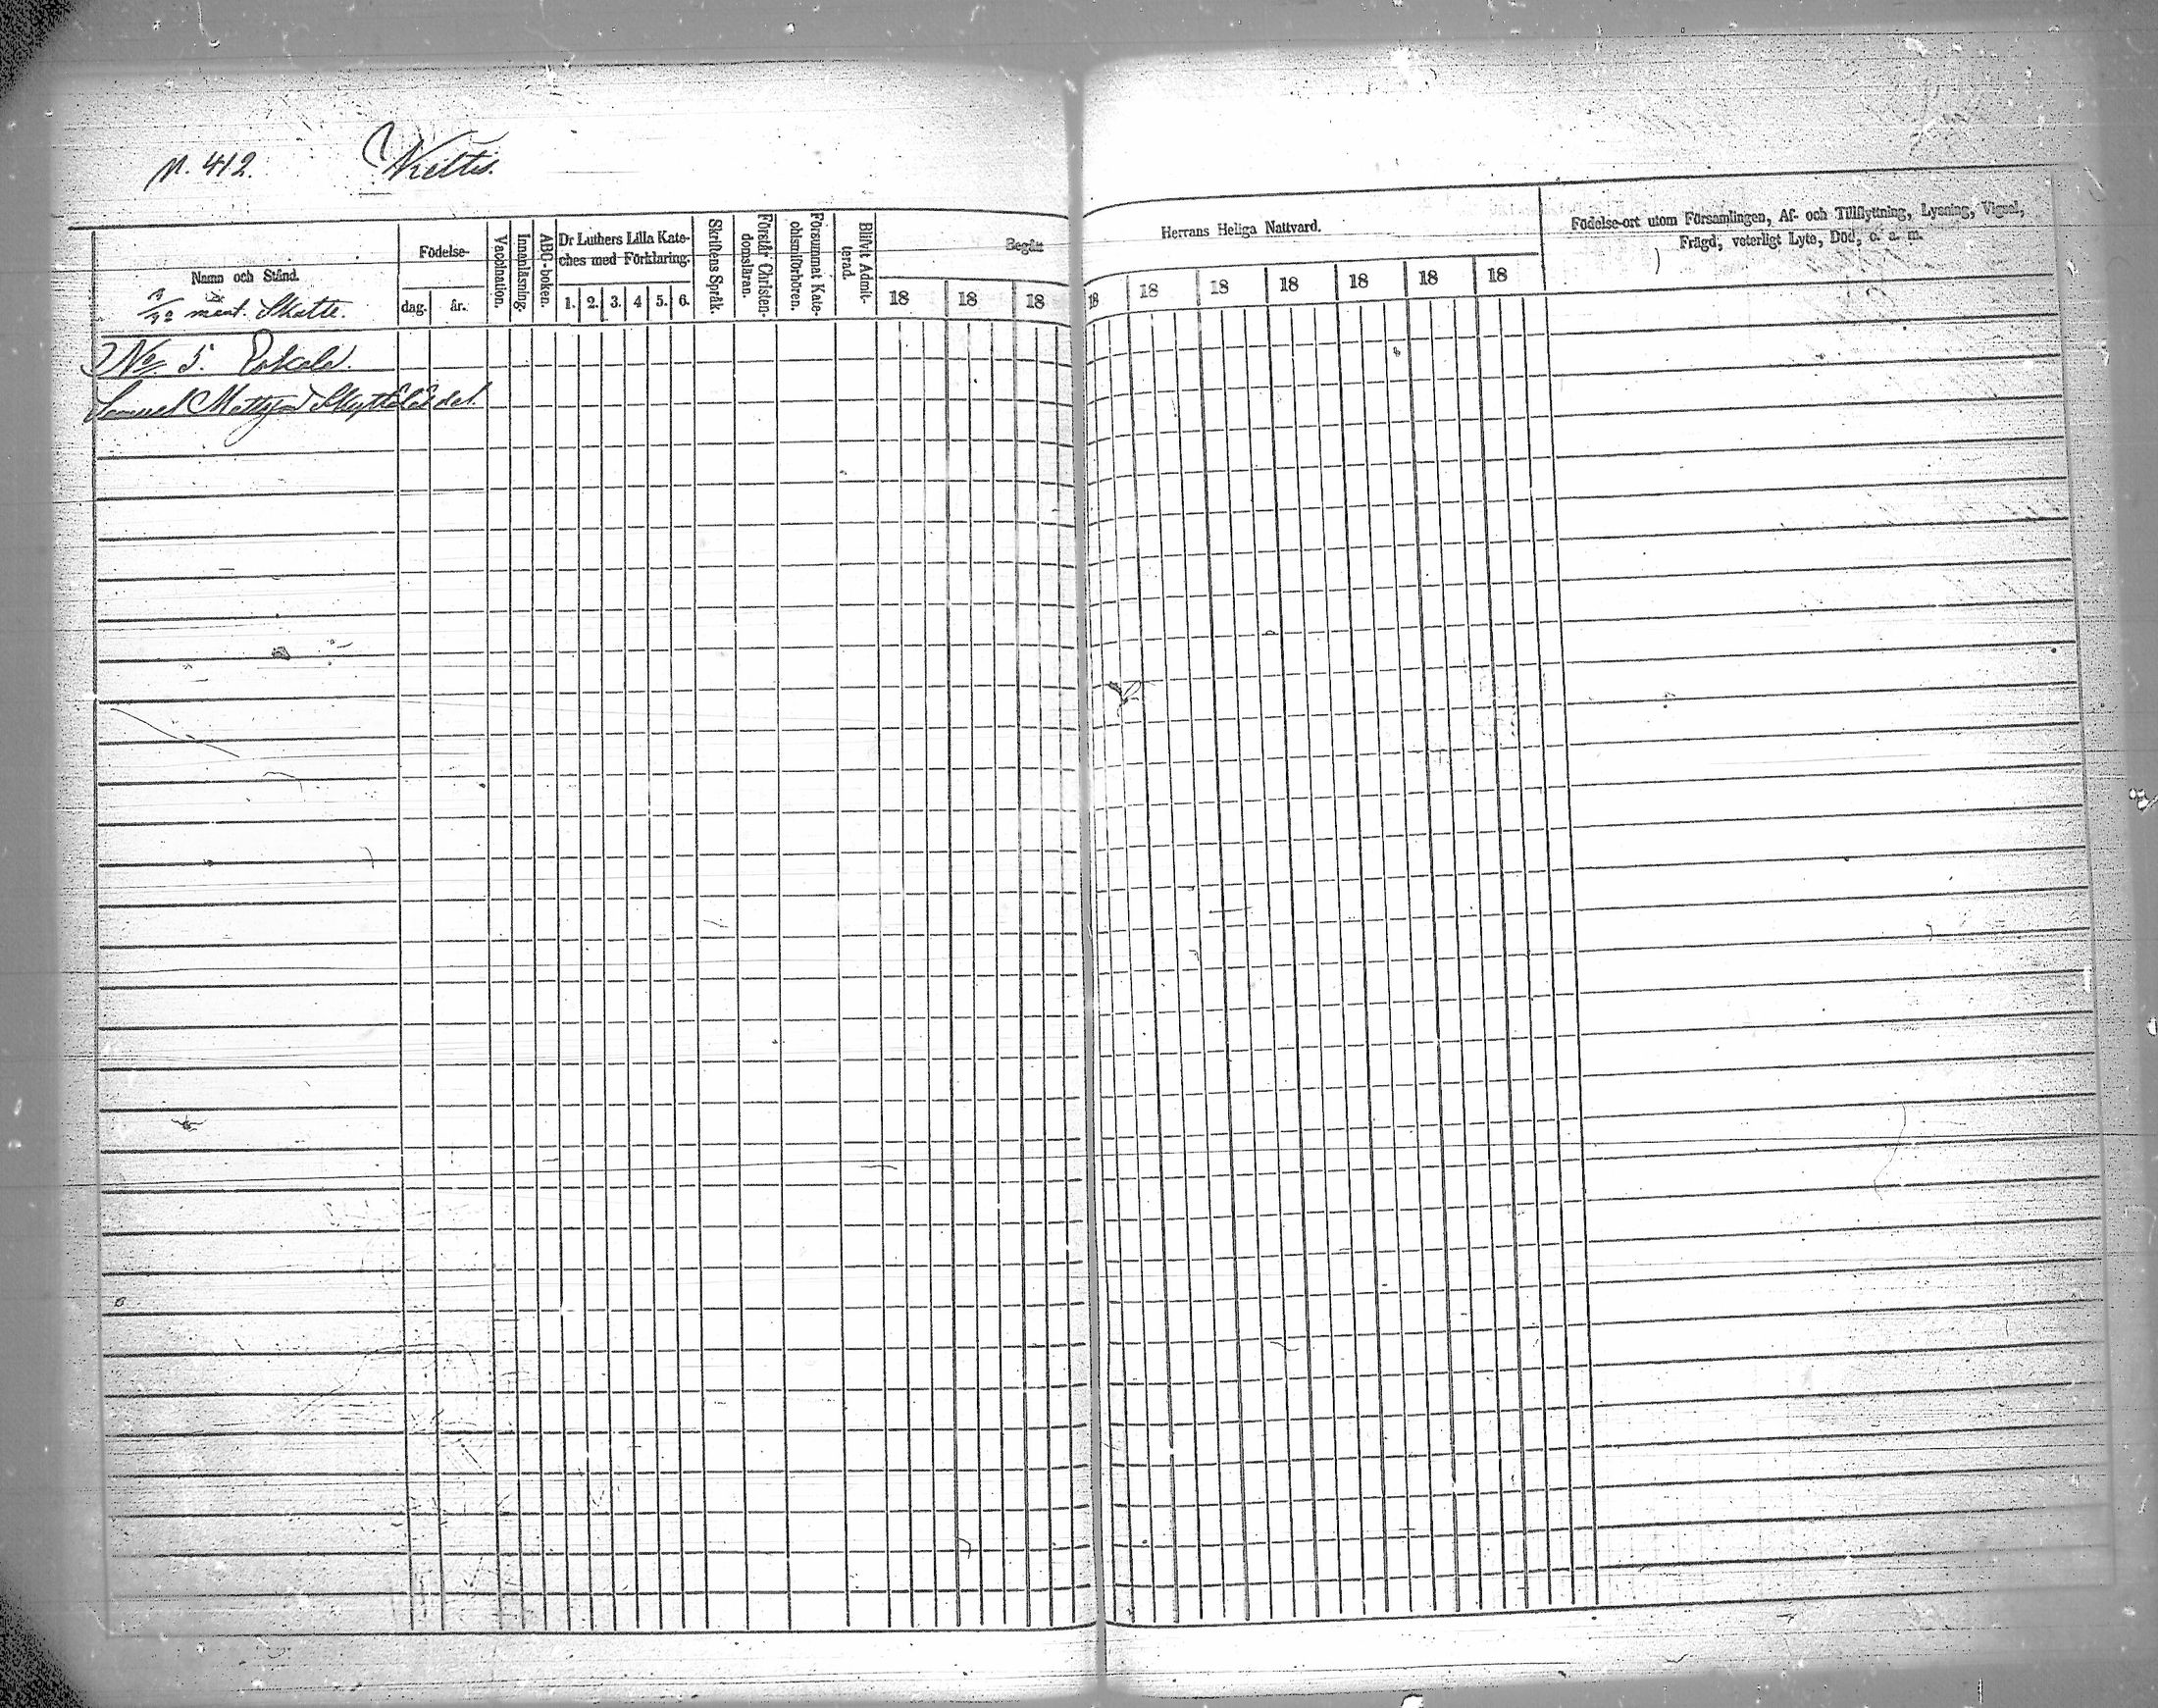 p. 412. Wiittis.
Namn och Stånd.
mant. Skatte.
Födelse-
dag. år.
Vaccination.
Innanläsning.
ABC-boken.
Dr Luthers Lilla Kate-
ches med Förklaring.
1. 2. 3. 4 5. 6.
Skriftens Språk.
Förstår Christen-
domsläran.
Försummat Kate-
chismiförhören.
Blifvit Admit-
terad.
Begått
18 18 18
Herrans Heliga Nattvard.
18 18 18 18 18 18 18
Födelse-ort utom Församlingen, Af- och Tillflyttning, Lysning, Vigsel,
Frägd, veterligt Lyte, Död, o. s. m.
No 5.
Samuel Mattsson